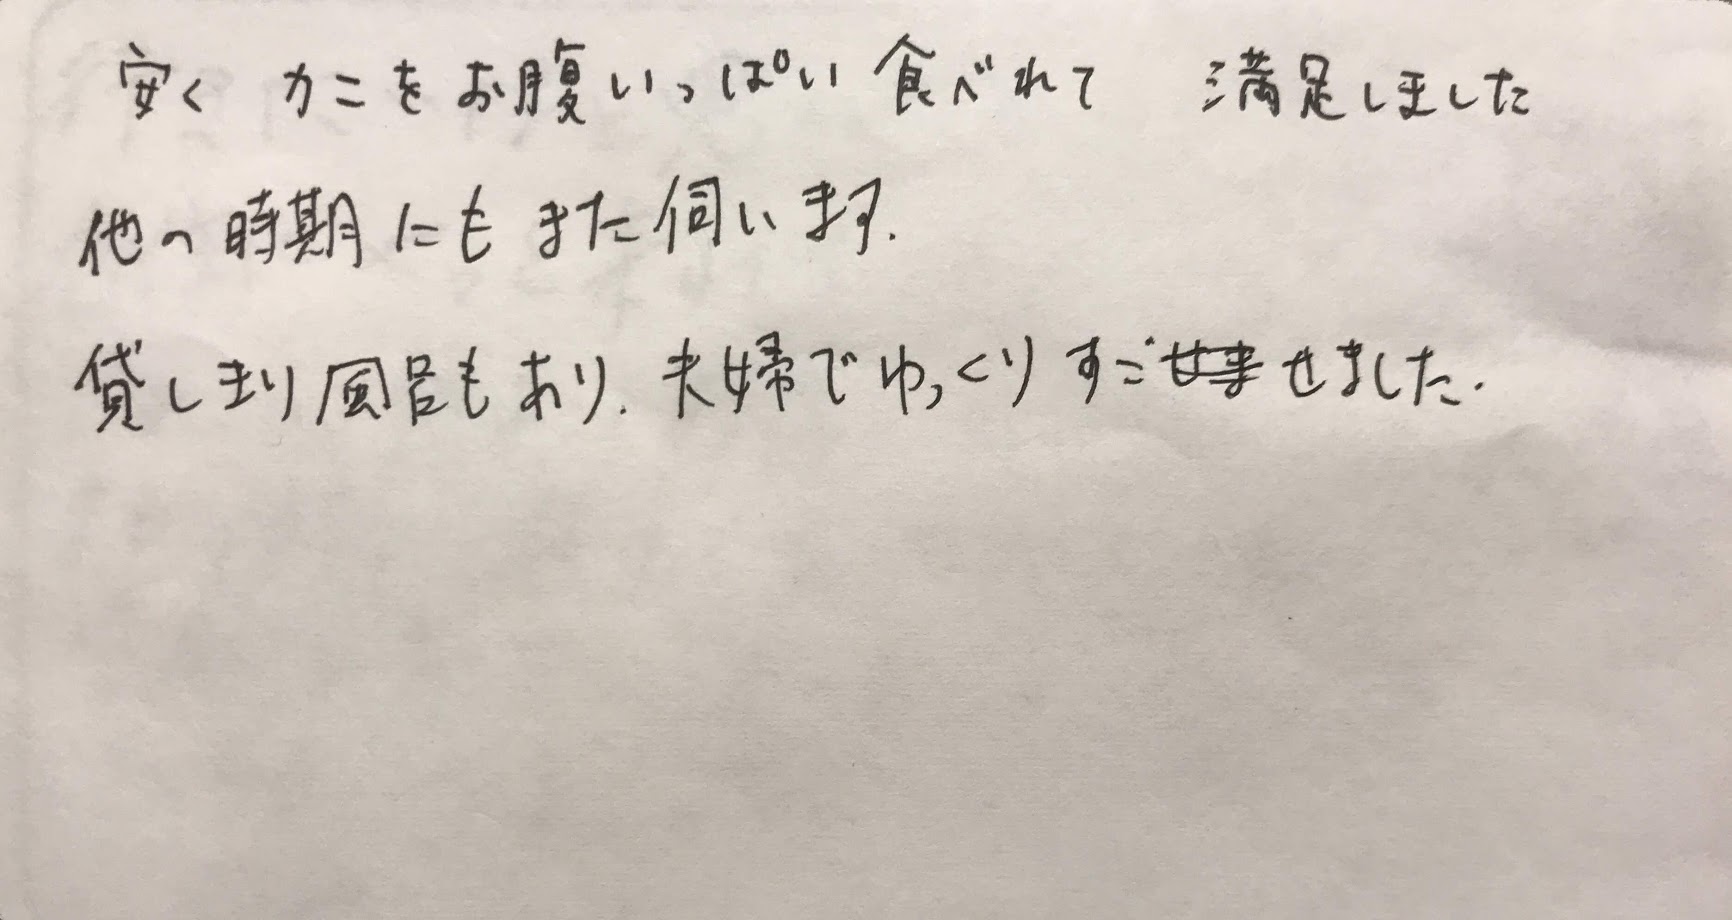 安く カニをお腹いっぱい食べれて 満足しました
他の時期にもまた伺います.
貸しきり風呂もあり. 夫婦でゆっくりすごせました.